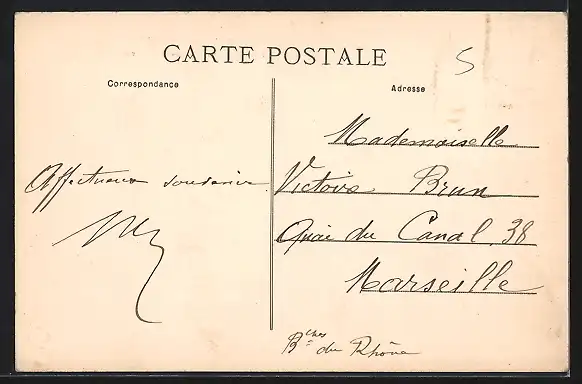 CARTE POSTALE
5
Correspondance
Adresse
Affectueux souvenir
Mademoiselle
Victoire Brun
Quai du Canal 38
Marseille
Bches du Rhône